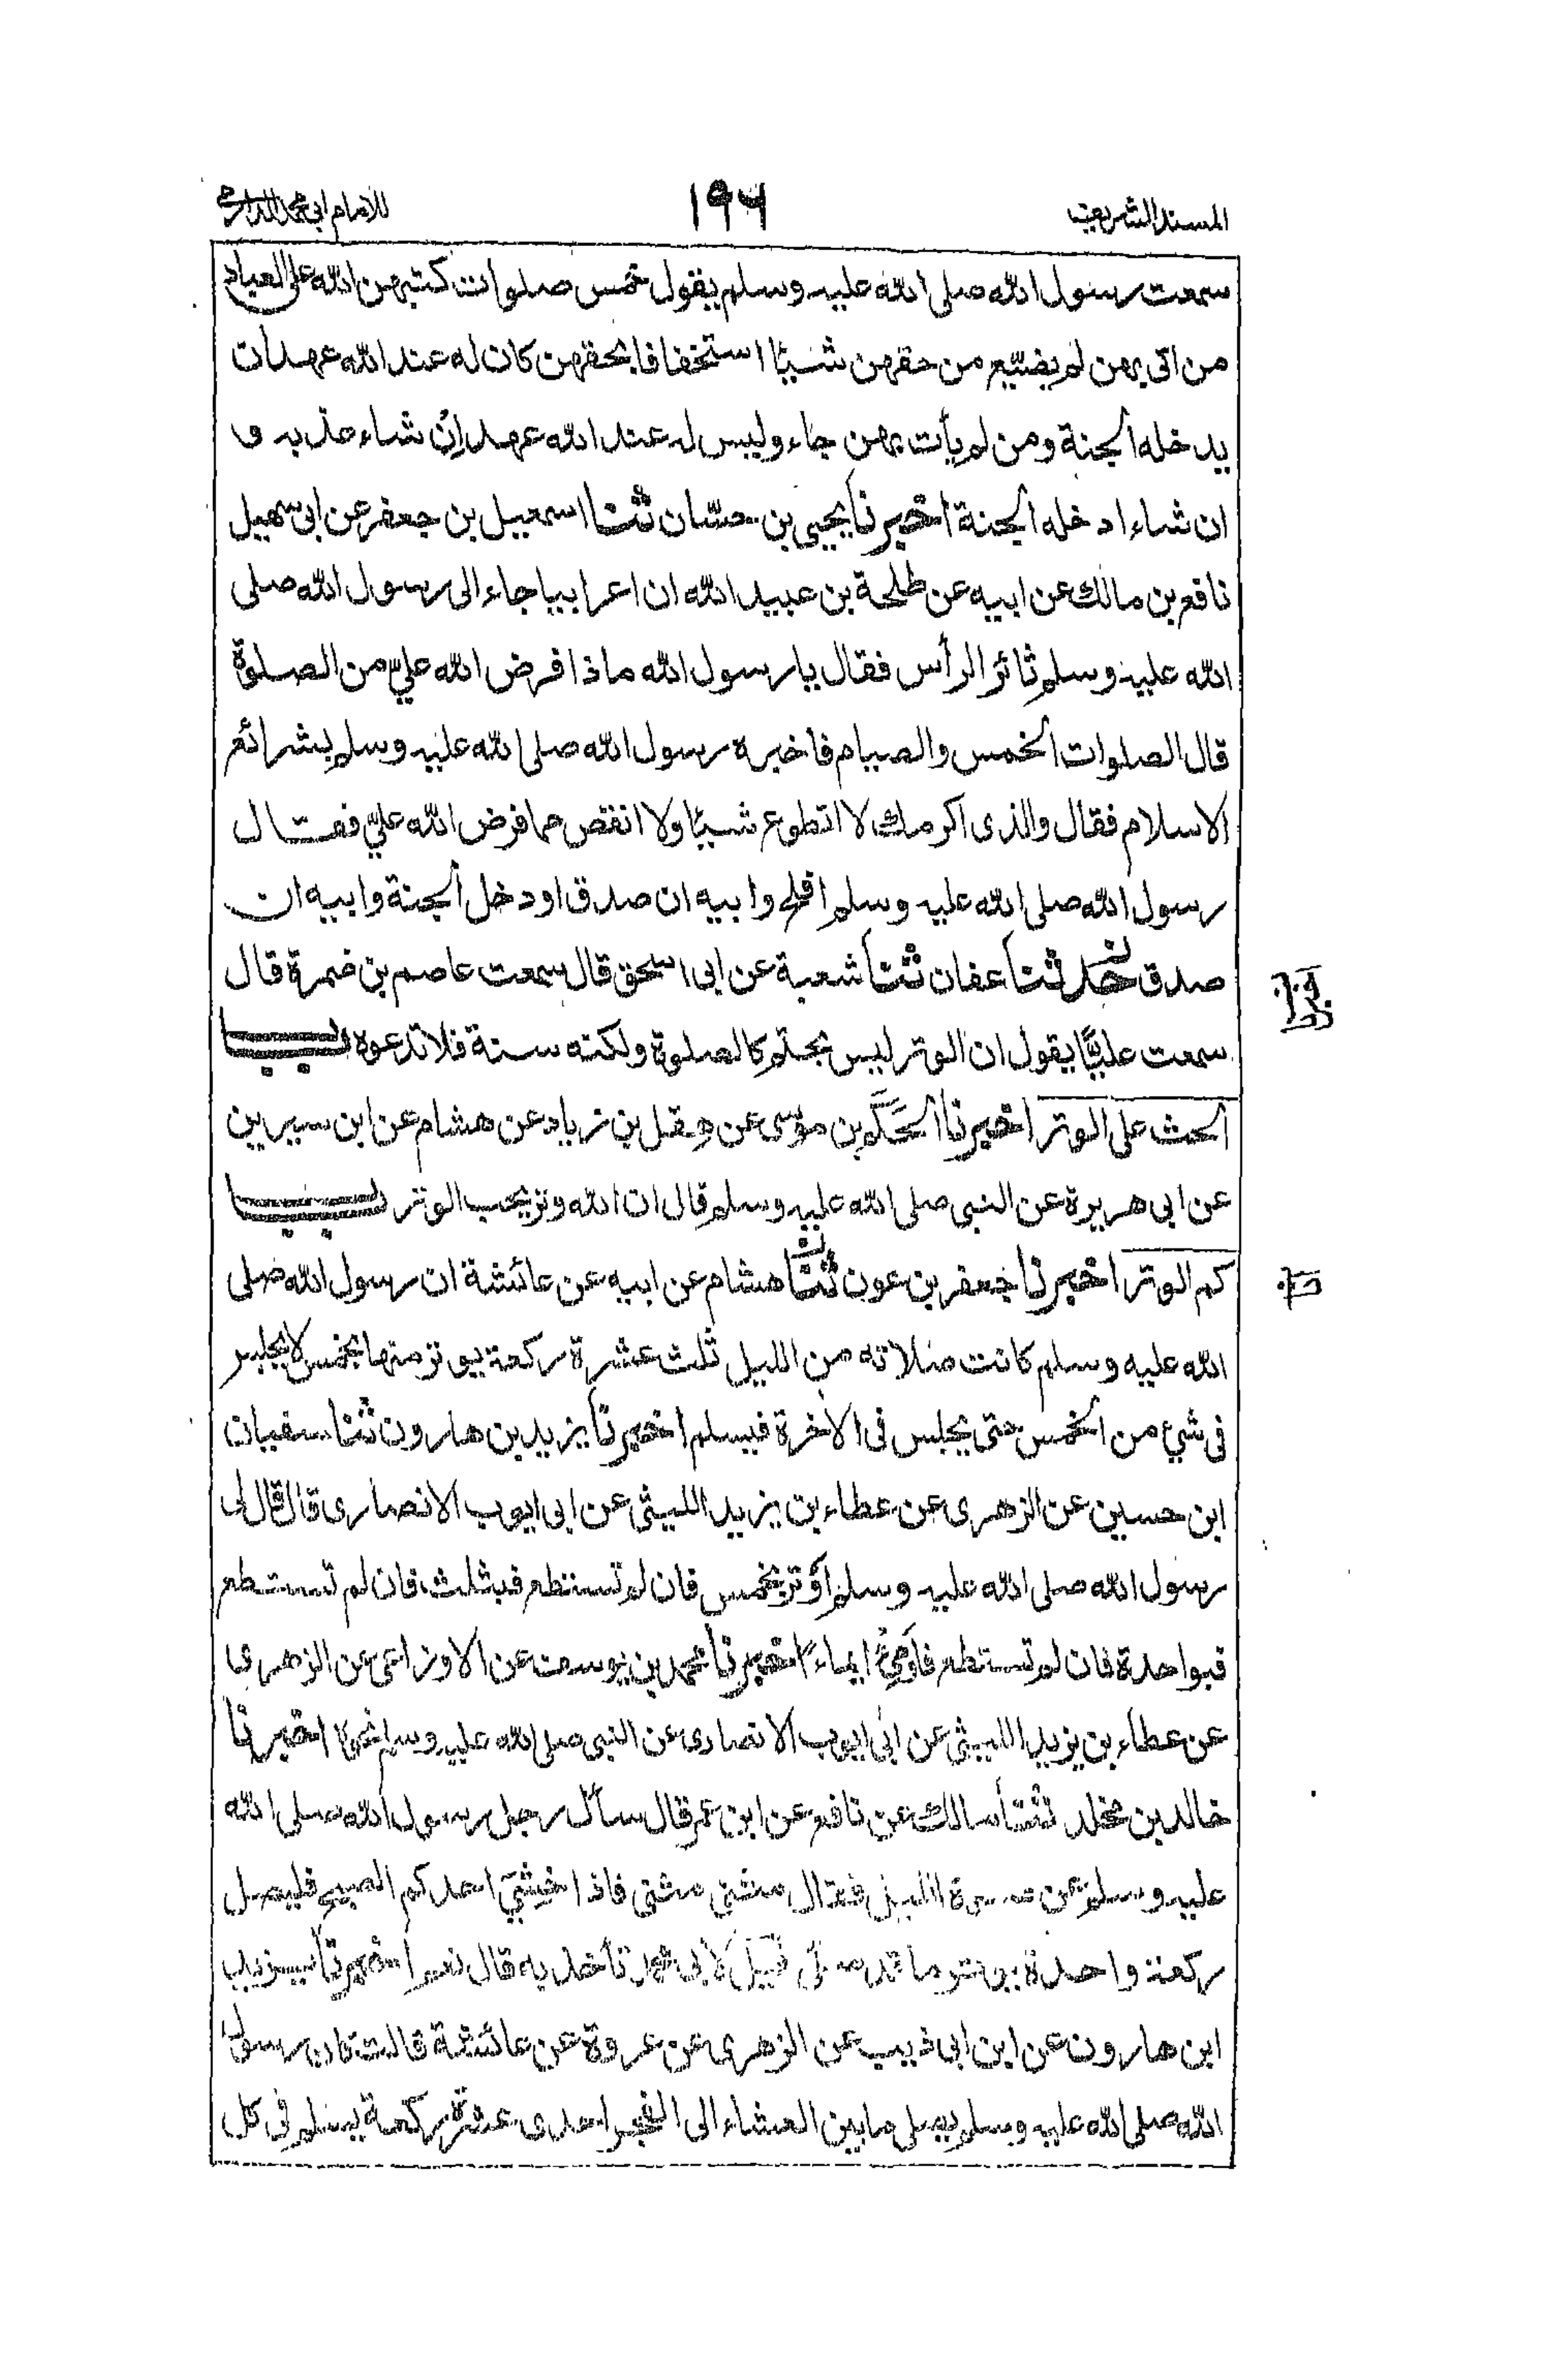 المسند الشريف
١٩٦
للامام ابي محمد الدارمي
سمعت رسول الله صلى الله عليه وسلم يقول خمس صلوات كتبهن الله على العباد
من اتى بهن لم يضيّع من حقهن شيئا استخفافا بحقهن كان له عند الله عهد ان
يدخله الجنة ومن لم يأت بهن جاء وليس له عند الله عهد اِن شاء عذبه و
ان شاء ادخله الجنة اخبرنا يحيى بن حسّان ثنا اسمعيل بن جعفر عن ابى سهيل
نافع بن مالك عن ابيه عن طلحة بن عبيد الله ان اعرابيا جاء الى رسول الله صلى
الله عليه وسلم ثائر الرأس فقال يا رسول الله ماذا فرض الله عليّ من الصلوة
قال الصلوات الخمس والصيام فاخبره رسول الله صلى الله عليه وسلم بشرائع
الاسلام فقال والذى اكرمك لا اتطوع شيئا ولا انقص مما فرض الله عليّ فقال
رسول الله صلى الله عليه وسلم افلح وابيه ان صدق او دخل الجنة وابيه ان
صدق حدثنا عفان ثنا شعبة عن ابى اسحق قال سمعت عاصم بن ضمرة قال
سمعت عليًّا يقول ان الوتر ليس بحتم كالصلوة ولكنه سنة فلا تدعوه باب
الحث على الوتر اخبرنا الحَكَم بن موسى عن هِقل بن زياد عن هشام عن ابن سيرين
عن ابى هريرة عن النبى صلى الله عليه وسلم قال ان الله وتر يحب الوتر باب
كم الوتر اخبرنا جعفر بن عون ثنا هشام عن ابيه عن عائشة ان رسول الله صلى
الله عليه وسلم كانت صلاته من الليل ثلث عشرة ركعة يوتر منها بخمس لا يجلس
فى شيء من الخمس حتى يجلس فى الاخرة فيسلم اخبرنا يزيد بن هارون ثنا سفيان
ابن حسين عن الزهرى عن عطاء بن يزيد الليثى عن ابى ايوب الانصارى قال قال لى
رسول الله صلى الله عليه وسلم اَوتر بخمس فان لم تستطع فبثلث فان لم تستطع
فبواحدة فان لم تستطع فاَومِئ ايماءً اخبرنا محمد بن يوسف عن الاوزاعى عن الزهرى
عن عطاء بن يزيد الليثى عن ابى ايوب الانصارى عن النبى صلى الله عليه وسلم نحوه اخبرنا
خالد بن مخلد ثنا مالك عن نافع عن ابن عمر قال سأل رجل رسول الله صلى الله
عليه وسلم عن صلوة الليل فقال مثنى مثنى فاذا خشِيَ احدكم الصبح فليصل
ركعة واحدة يوتر ما قد صلى قِيلَ لابى محمد تأخذ به قال نعم اخبرنا يزيد
ابن هارون عن ابن ابى ذئب عن الزهرى عن عروة عن عائشة قالت كان رسول
الله صلى الله عليه وسلم يصلى ما بين العشاء الى الفجر احدى عشرة ركعة يسلم فى كل